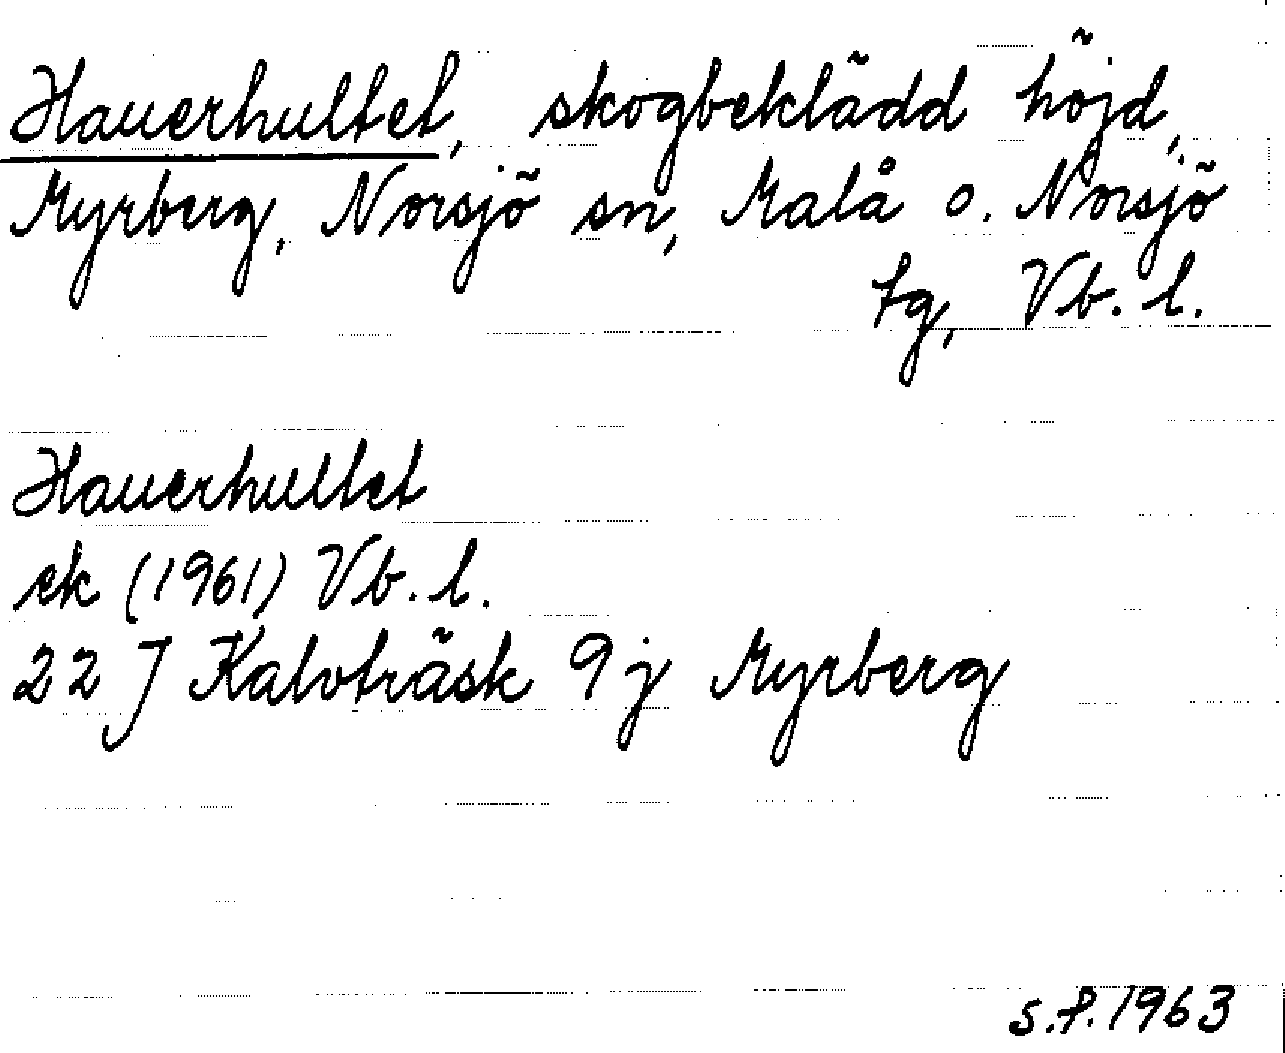 Hauerhultet, skogbeklädd höjd,
Myrberg, Norsjö sn, Malå o. Norsjö
tg, Vb. l.
Hauerhultet
ek (1961) Vb. l.
22 J Kalvträsk 9 j Myrberg
s.f. 1963